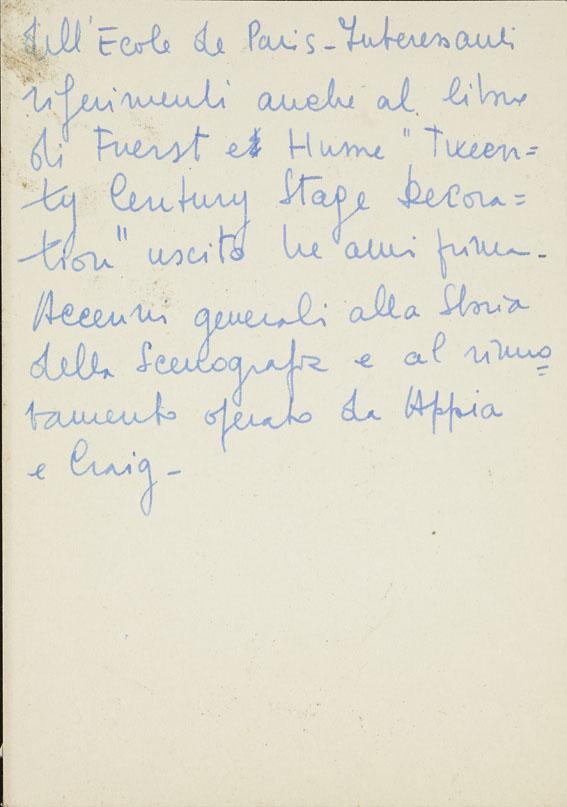 dell'Ecole de Paris - Interessanti
riferimenti anche al libro
di Fuerst e Hume "Tween=
ty Century Stage Decora=
tion" uscito tre anni prima -
Accenni generali alla Storia
della Scenografia e al rinno
tamento operato da Appia
e Craig -